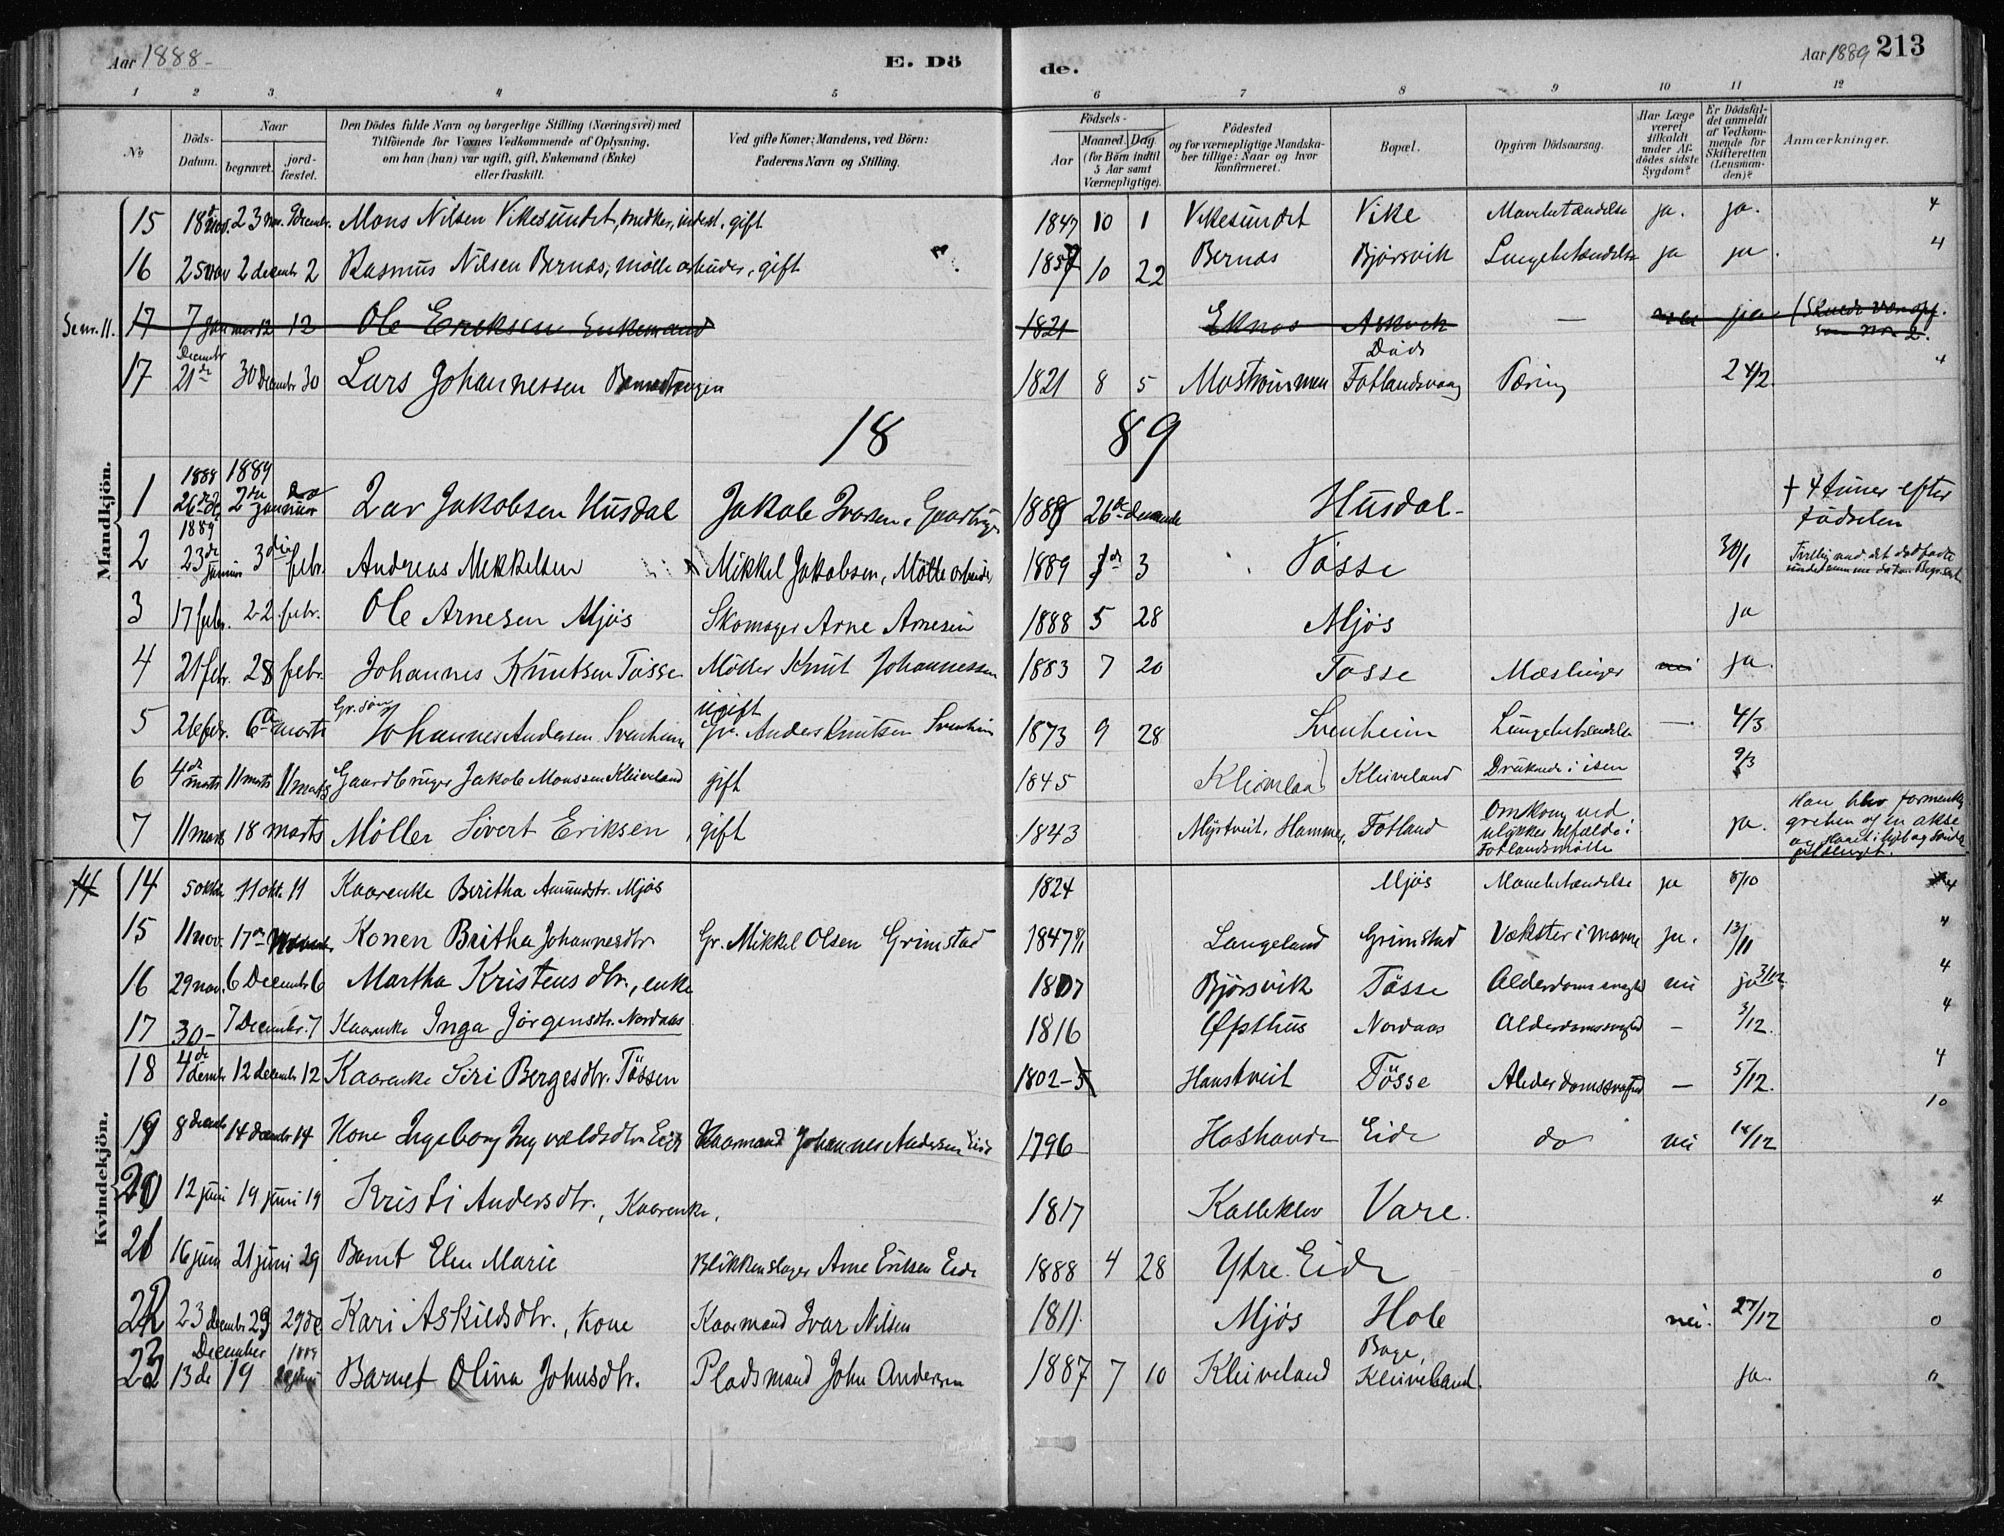 Aar 1888.
E. Dö
de.
Aar 1889
213
1 2 3 4 5 6 7 8 9 10 11 12
No
Döds-Datum.
Naar
begravet.
jordfæstet.
Den Dödes fulde Navn og borgerlige Stilling (Næringsvei) med
Tilföiende for Voxnes Vedkommende af Oplysning,
om han (hun) var ugift, gift, Enkemand (Enke)
eller fraskilt.
Ved gifte Koner: Mandens, ved Börn:
Faderens Navn og Stilling.
Födsels-
Aar
Maaned. Dag.
(for Börn indtil
5 Aar samt
Værnepligtige).
Födested
og for værnepligtige Mandska-
ber tillige: Naar og hvor
konfirmeret.
Bopæl.
Opgiven Dödsaarsag.
Har Læge
været
tilkaldt
under Af-
dödes sidste
Sygdom?
Er Dödsfal-
det anmeldt
af Vedkom-
mende for
Skifteretten
(Lensman-
den)?
Anmærkninger.
Mandkjön.
15 18 nov. 23 nov. Mons Nilsen Vikesundet, gift 1847 10 1 Vikesundet Vike Mavebetændelse ja. ja. 4
16 25 nov 2 decembr 2 Rasmus Nilsen Bernæs, möllearbeider, gift 1857 10 22 Bernæs Bjørsvik Lungebetændelse ja ja. 4
17 7 januar 12 12 Ole Eriksen Enkemand 1821 Eknæs Askvik — ja (Skulde være opf.
som nr. 2.
17 Decembr 21de 30 Decembr 30 Lars Johannessen 1821 8 5 Mostraumen Död Fotlandsvaag Tæring 24/2. 4
18 89
1 1888 26de 1889 2den januar Lar Jakobsen Husdal Jakob Ivarsen, Gaardbruger 1888 26de Husdal - † 4 timer efter
födselen
2 1889 23de januar 3die febr. Andreas Mikkelsen Mikkel Jakobsen, Möllearbeider 1889 3 Tösse 30/1
3 17 febr. 22 febr. Ole Arnesen Mjös Skomager Arne Arnesen 1888 5 28 Mjös ja
4 21 febr. 28 febr. Johannes Knutsen Tösse Möller Knut Johannessen 1883 7 20 Tösse Mæslinger nei ja.
5 26 febr. 6te marts Gr. søn Johannes Andersen Svenheim ugift Gr. Anders Knutsen Svenheim 1873 9 28 Svenheim Lungebetændelse — 4/3
6 4de marts 11 marts 11 marts Gaardbruger Jakob Monssen Kleiveland gift 1845 Kleiveland Kleiveland Druknede i isen 9/3
7 11 marts 18 marts Möller Sivert Eriksen, gift 1843 Myrtveit, Hammer, Fotland Omkom ved
ulykkestilfælde i
Fotlandsmölle ja. Han blev
greben af en akse
Kvindekjön.
14 14 5 oktbr 11 oktbr 11 Kaarenke Beritha Amundsdtr. Mjös 1824 Mjös Mavebetændelse ja 8/10 4
15 11 nov. 17de Konen Britha Johannesdtr Gr. Mikkel Olsen Grimstad 1847 Langeland Grimstad Vækster i maven ja. 13/11 4
16 29 nov. 6 Decembr 6 Martha Kristensdtr., enke 1807 Bjørsvik Tösse Alderdomssvaghed nei ja 3/12. 4
17 30 - 7 Decembr. 7 Kaarenke Inga Jörgensdtr. Nordaas 1816 Öfsthus Nordaas Alderdomssvaghed — 3/12. 4
18 4de decembr 12 decembr 12 Kaarenke Siri Bergesdtr. Tössen 1802 Hanstveit Tösse Alderdomssvaghed — 5/12. 4
19 8 decembr 14 decembr 14 Kone Ingeborg Ingvaldsdtr Eide Kaarmand Johannes Andersen Eide 1796 Eide do nei 14/12 10
20 12 juni 19 juni 19 Kristi Andersdtr., Kaarenke. 1817 Kalleklev Vare. 4
21 16 juni 21 juni 29 Barnet Elen Marie Blikkenslager Arne Eriksen Eide 1888 4 28 Ytre Eide 0
22 23 decembr 29 29de Kari Askildsdtr., Kone Kaarmand Ivar Nilsen 1811. Mjös Hole nei. 27/12 0
23 December 13de 19 1889 Barnet Olina Johnsdtr. Pladsmand John Andersen 1887 7 10 Kleiveland Kleiveland. ja. "